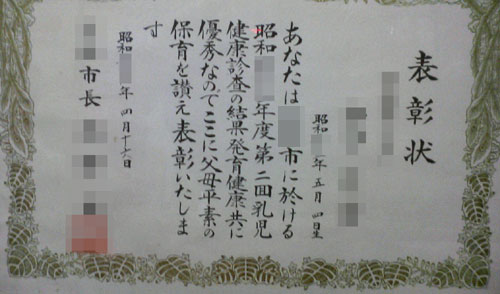 表彰状
昭和 年五月四日生
あなたは 市に於ける
昭和 年度第二回乳児
健康診査の結果発育健康共に
優秀なのでここに父母平素の
保育を讃え表彰いたしま
す
昭和 年四月十六日
市長